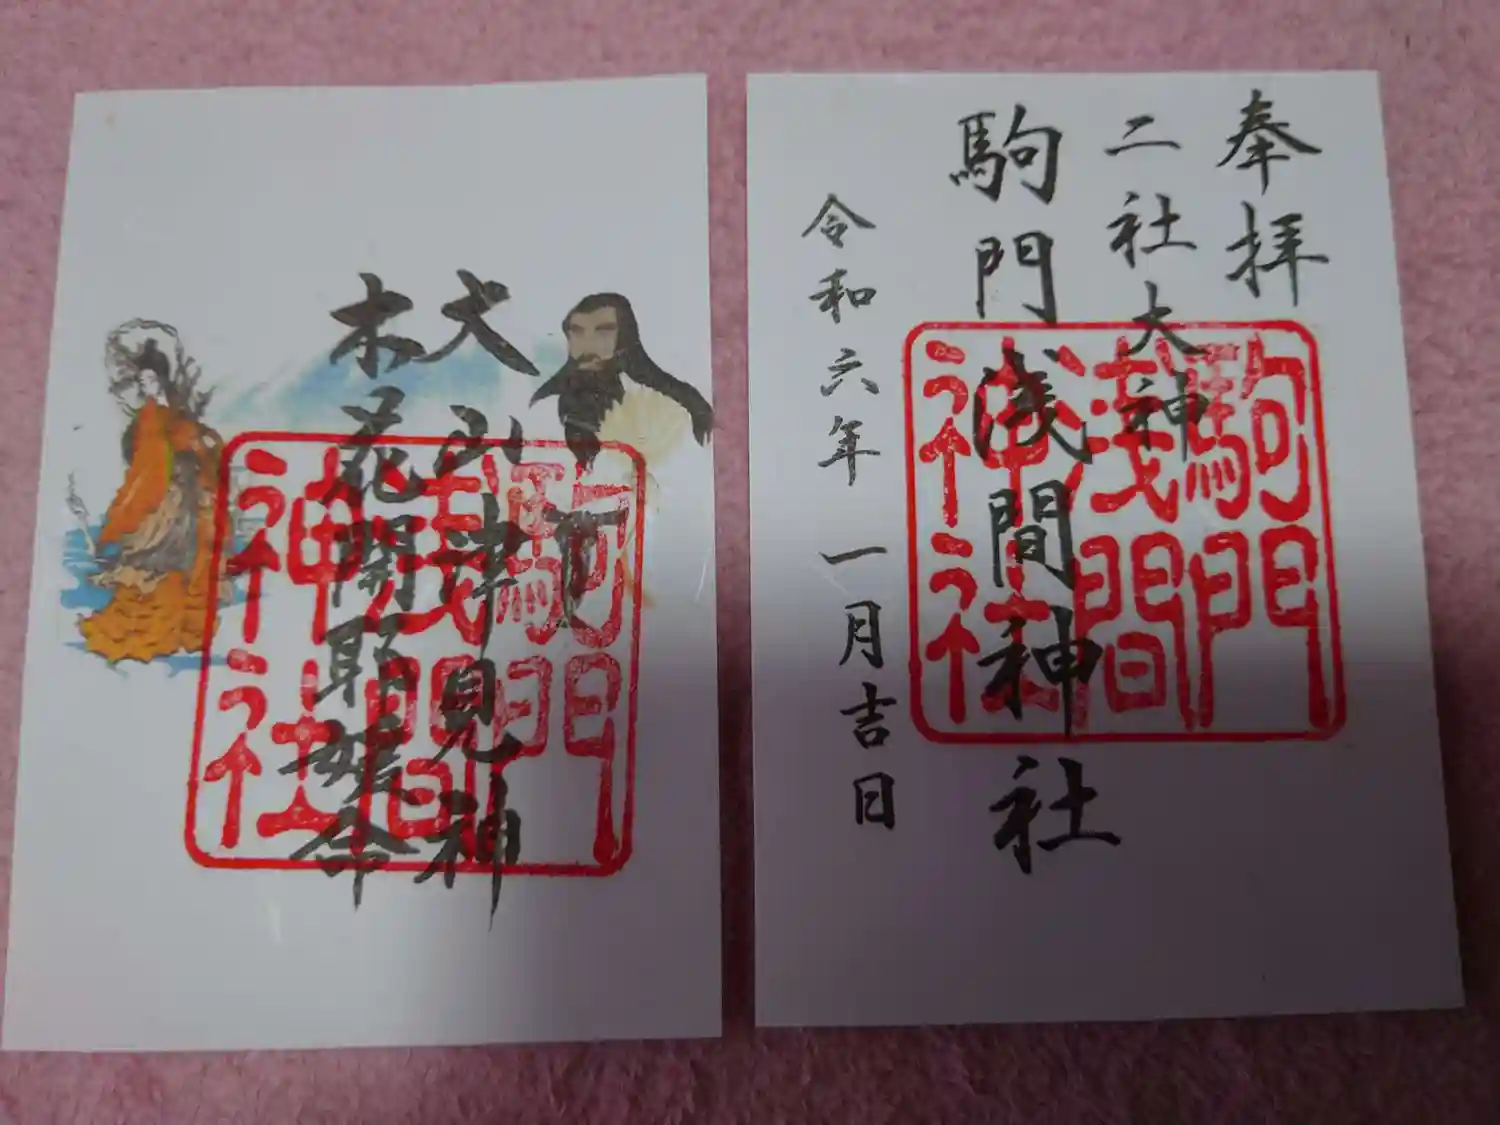 大山津見神
木花開耶媛命
駒門
淺間
神社
奉拝
二社大神
駒門浅間神社
令和六年一月吉日
駒門
淺間
神社